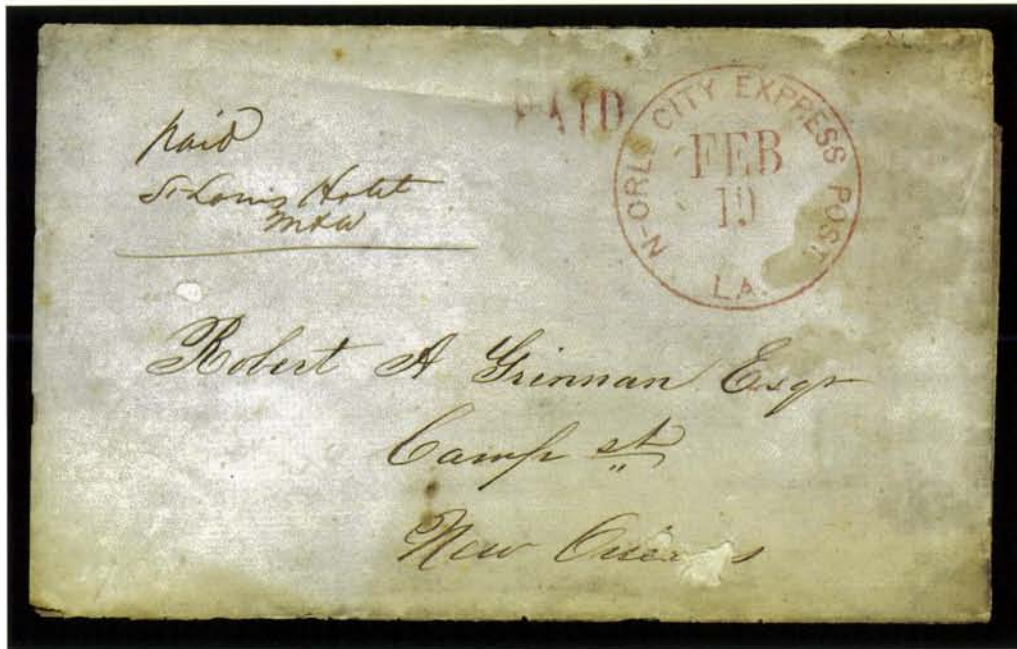 paid
St Louis Hotel
PAID
N-ORLS CITY EXPRESS POST
FEB
19
LA.
Robert A Grinnan Esqr
Camp st
New Orleans